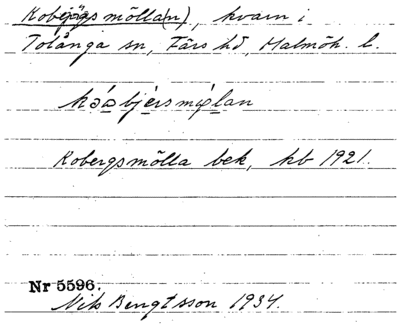 Kobergs mölla(n), kvarn i
Tolånga sn, Färs hd, Malmöh. l.
Kobergsmölla bek, kb 1921.
Nr 5596.
Nils Bengtsson 1934.